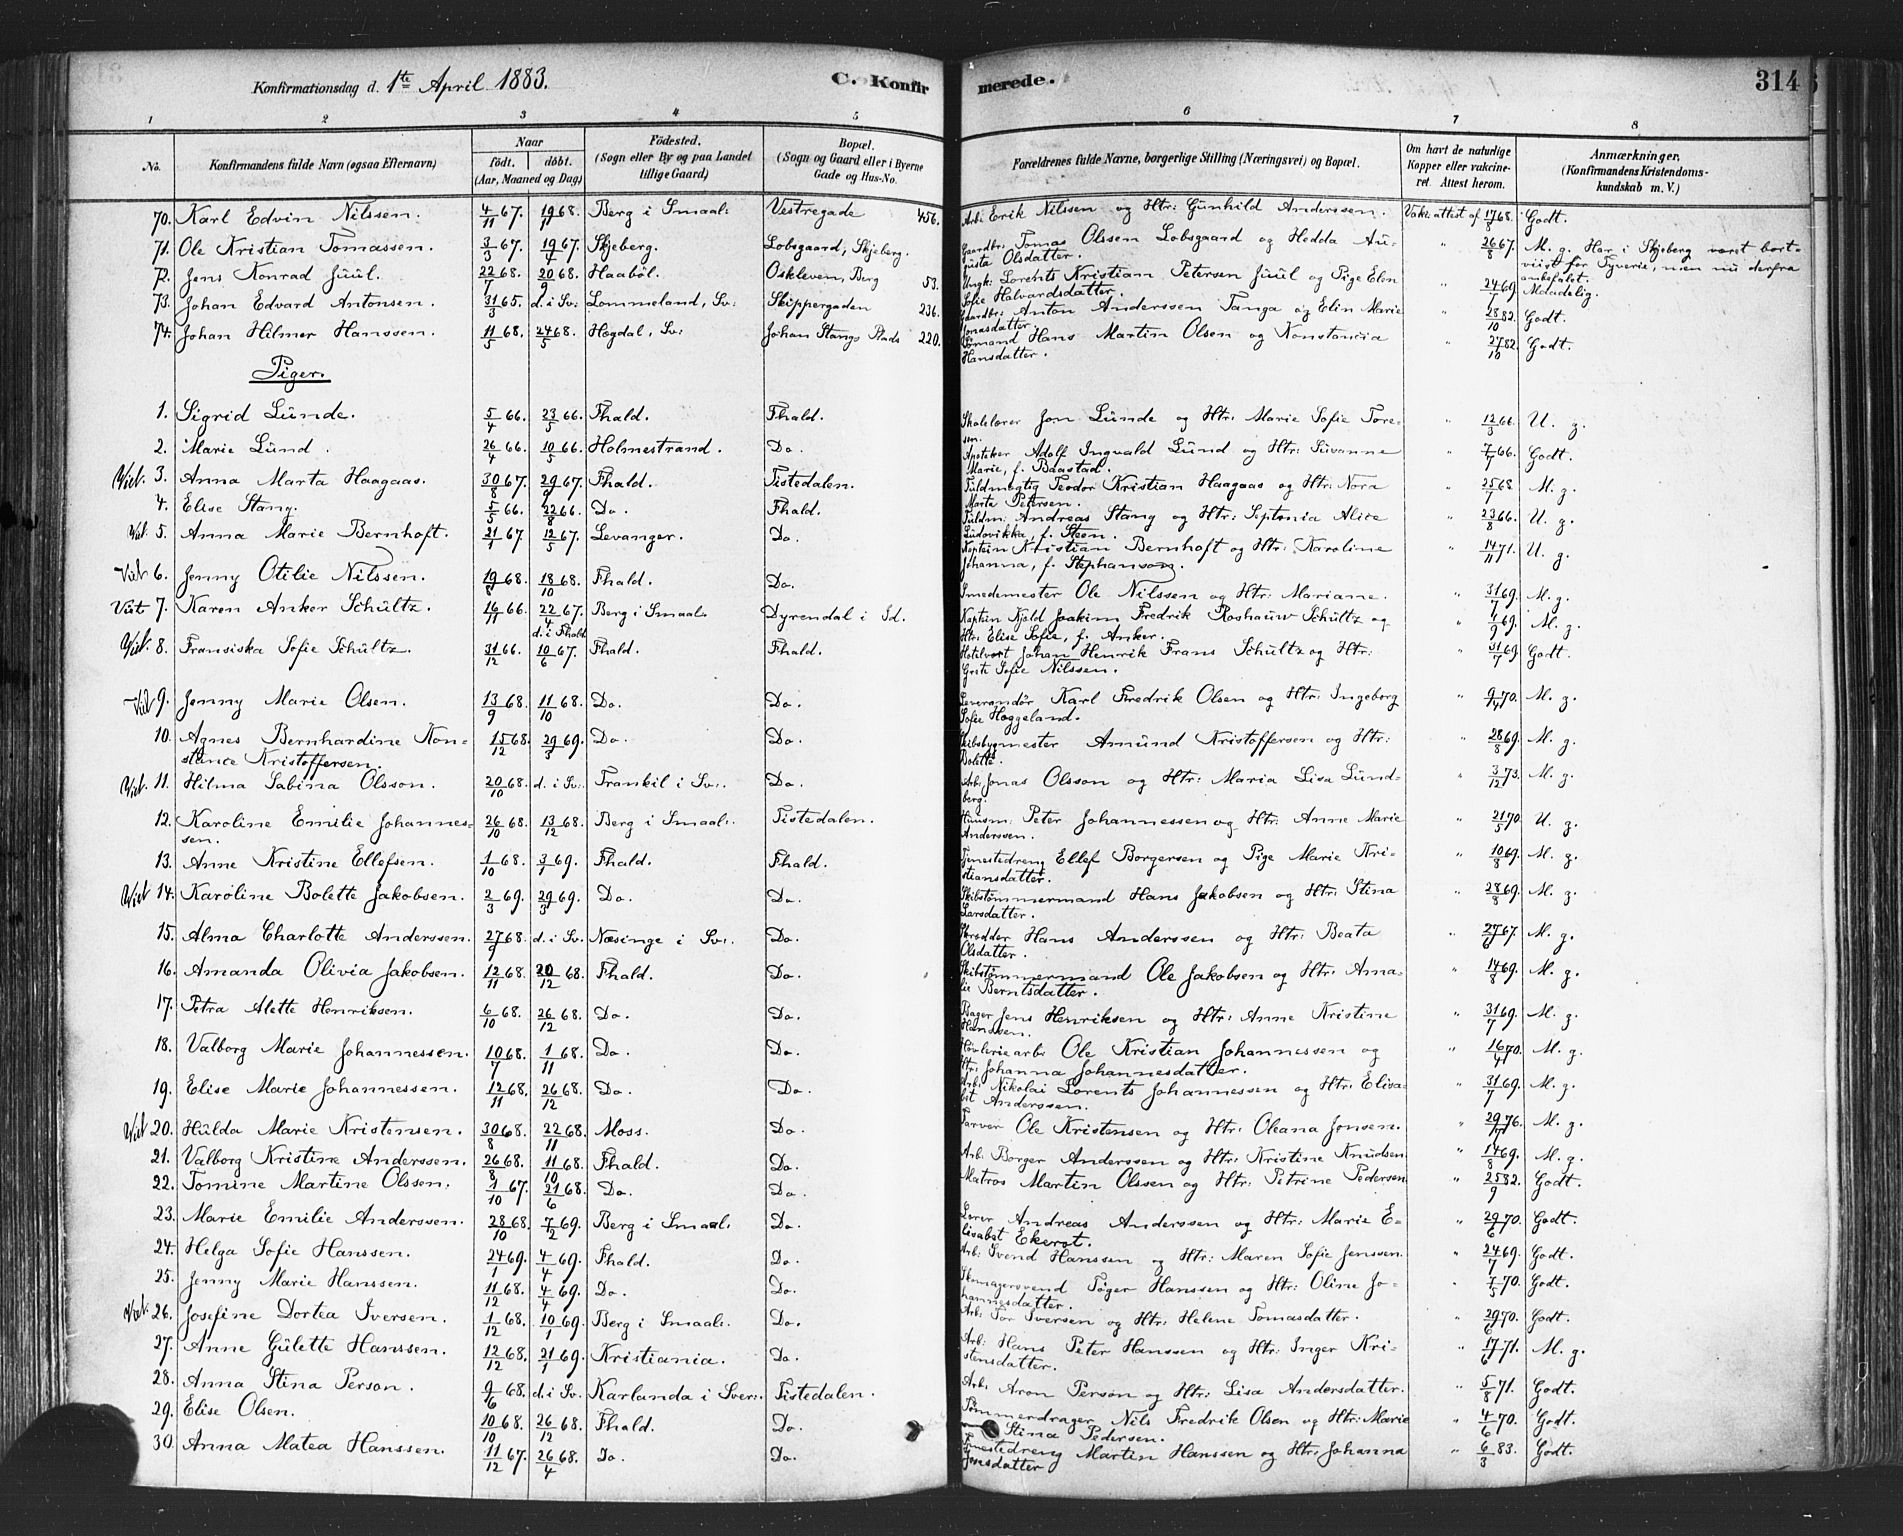 Konfirmationsdag d. 1te April 1883. C. Konfirmerede. 314
1 2 3 4 5 6 7 8
No. Konfirmandens fulde Navn (ogsaa Efternavn) Naar født, døbt. (Aar, Maaned og Dag) Fødested. (Sogn eller By og paa Landet tillige Gaard) Bopæl. (Sogn og Gaard eller i Byerne Gade og Hus-No. Forældrenes fulde Navne, borgerlige Stilling (Næringsvei) og Bopæl. Om havt de naturlige Kopper eller vakcineret. Attest herom. Anmærkninger. (Konfirmandens Kristendomskundskab m. V.)
70. Karl Edvin Nilssen. 4/11 67. Berg i Smaal: Vestregade 456. Arb: Erik Nilssen og Htr: Gunhild Anderssen. Vaks: attest af 17/8 68. Godt.
71. Ole Kristian Tomassen. 3/3 67. 19/4 67. Skjeberg. Lobsgaard, Skjeberg. Gaardbr: Tomas Olssen Lobsgaard og Hedda Augusta Olsdatter. " 26/8 67. M. g. Har i Skjeberg været bortviist for Tyverie, men nu derfra anbefalet.
72. Jens Konrad Juul. 22/7 68. 20/9 68. Haabøl. Oskleven, Berg 53. Ungk: Lorents Kristian Petersen Juul og Pige Elen Sofie Halvardsdatter. " 24/7 69. Maadelig.
73. Johan Edvard Antonsen. 31/3 65. d. i Sv: Lommeland, Sv: Skippergaden 236. Gaardbr: Anton Anderssen Tanga og Elin Marie Jonasdatter " 28/10 82. Godt.
74. Johan Hilmer Hanssen. 11/5 68. 24/5 68. Hogdal, Sv: Johan Stangs Plads 220. Tømand Hans Martin Olsen og Konstancia Hansdatter. " 27/10 82. Godt.
Piger.
1. Sigrid Lünde. 5/4 66. 23/5 66. Fhald. Fhald. Skolelærer Jon Lünde og Htr: Marie Sofie Toresen. " 12/3 66. U. g.
2. Marie Lünd. 26/4 66. 10/5 66. Holmestrand. Do. Apoteker Adolf Ingvald Lünd og Htr: Süvanne Marie, f. Baastad. " 7/7 66. Godt.
Viet. 3. Anna Marta Haagaas. 30/8 67. 29/9 67. Fhald. Tistedalen. Fuldmegtig Teodor Kristian Haagaas og Htr: Nora Marta Petersen. " 25/7 68 M. g.
4. Elise Stang. 5/5 66. 22/8 66. Do. Fhald. Fuldm: Andreas Stang og Htr: Septonia Alice Ludovikka, f. Steen. " 23/8 66. U. g.
Viet. 5. Anna Marie Bernhoft. 21/1 67 12/5 67. Levanger. Do. Kaptein Kristian Bernhoft og Htr: Karoline Johanna, f. Stephanson. " 14/11 71. U. g.
Viet 6. Jenny Otilie Nilssen. 19/8 68. 18/10 68. Fhald. Do. Smedemester Ole Nilssen og Htr: Mariane. " 31/7 69. M. g.
Viet 7. Karen Anker Schültz. 16/11 66. 22/4 67. d. i Fhald Berg i Smaal: Dyrendal i Id. Kaptein Kjold Joakim Fredrik Roshauw Schültz og Htr: Elise Sofie, f. Anker. " 4/9 69. M. g.
Viet. 8. Fransiska Sofie Schültz. 31/12 66. 10/6 67. Fhald. Fhald. Hotelvert Johan Henrik Frans Schültz og Htr: Grete Sofie Nilssen. " 31/7 69 Godt.
Viet 9. Jenny Marie Olsen. 13/9 68. 11/10 68. Do. Do. Leverandør Karl Fredrik Olsen og Htr: Ingeborg Sofie Høggeland. " 9/4 70. M. g.
10. Agnes Bernhardine Konstance Kristoffersen. 15/12 68. 29/3 69. Do. Do. Skibsbygmester Amünd Kristoffersen og Htr: Bolette. " 28/8 69. M. g.
Viet. 11. Hilma Sabina Olsson. 20/10 68. d. i Sv: Trankil i Sv: Do. Arb: Jonas Olsson og Htr: Maria Lisa Lündberg. " 3/12 73. M. g.
12. Karoline Emilie Johannessen. 26/10 68. 13/12 68. Berg i Smaal: Tistedalen. Huusm: Peter Johannessen og Htr: Anne Marie Anderssen. " 21/5 70. U. g.
13. Anne Kristine Ellefsen. 1/10 68. 3/1 69. Fhald. Fhald. Tjenestedreng Ellef Borgersen og Pige Marie Kristiansdatter. " 10/8 69. M. g.
Viet 14. Karoline Bolette Jakobsen. 2/3 69. 29/3 69. Do. Do. Skibstømmermand Hans Jakobsen og Htr: Stina Larsdatter. " 28/8 69. M. g.
15. Alma Charlotte Anderssen. 27/9 68. d. i Sv. Næsinge i Sv: Do. Skredder Hans Anderssen og Htr: Beata Olsdatter. " 27/6 67. M. g.
16. Amanda Olivia Jakobsen. 12/11 68. 20/12 68. Fhald. Do. Skibstømmermand Ole Jakobsen og Htr: Amalie Berntsdatter. " 14/8 69. M. g.
17. Petra Alette Henriksen. 6/10 68. 26/12 68. Do. Do. Bager Jens Henriksen og Htr: Anne Kristine Hanssen. " 31/7 69. M. g.
18. Valborg Marie Johannessen. 10/7 68. 1/11 68. Do. Do. Høvleriearb: Ole Kristian Johannessen og Htr: Johanna Johannesdatter. " 16/4 70. M. g.
19. Elise Marie Johannessen. 12/11 68. 26/12 68. Do. Do. Arb: Nikolai Lorents Johannessen og Htr: Elisabet Anderssen. " 31/7 69. M. g.
Viet 20. Hülda Marie Kristensen. 30/8 68. 22/11 68. Moss. Do. Farver Ole Kristensen og Htr: Oleana Jonsen. " 29/4 76. M. g.
21. Valborg Kristine Anderssen. 26/8 68. 11/10 68. Fhald. Do. Arb: Borger Anderssen og Htr: Kristine Knudsen " 14/8 69. M. g.
22. Tomine Martine Olssen. 1/10 67. 21/6 68. Do. Do. Matros Martin Olssen og Htr: Petrine Pedersen " 25/9 82. Godt.
23. Marie Emilie Anderssen. 28/10 68. 7/2 69. Berg i Smaal: Do. Lærer Andreas Anderssen og Htr: Marie Elisabet Ekerot. " 29/6 70. Godt.
24. Helga Sofie Hanssen. 24/1 69. 4/4 69. Fhald. Do. Arb: Svend Hanssen og Htr: Maren Sofie Jenssen. " 24/7 69. Godt.
25. Jenny Marie Hanssen. 11/12 68. 4/4 69. Do. Do. Skomagersvend Töger Hanssen og Htr: Oline Johannesdatter. " 7/5 70. Godt.
Viet. 26. Josefine Dortea Iversen. 1/12 68. 10/1 69. Berg i Smaal: Do. Arb: Tor Iversen og Htr: Helene Tomasdatter. " 29/6 70. Godt.
27. Anne Gülette Hanssen. 12/12 68. 21/1 69. Kristiania. Do. Arb: Hans Peter Hanssen og Htr: Inger Kristensdatter. " 17/6 71. M. g.
28. Anna Stina Person. 9/6 68. d. i Sv. Karlanda i Sver: Tistedalen. Arb: Aron Person og Htr: Lisa Andersdatter. " 5/8 71. Godt.
29. Elise Olsen. 10/10 68. 26/12 68. Fhald. Do. Tømmerdrager Nils Fredrik Olsen og Htr: Marie Stina Pedersen. " 4/6 70. Godt.
30. Anna Matea Hanssen. 11/12 67. 26/4 68. Do. Do. Tjenestedreng Martin Hanssen og Htr: Johanna Jensdatter " 6/3 83. Godt.